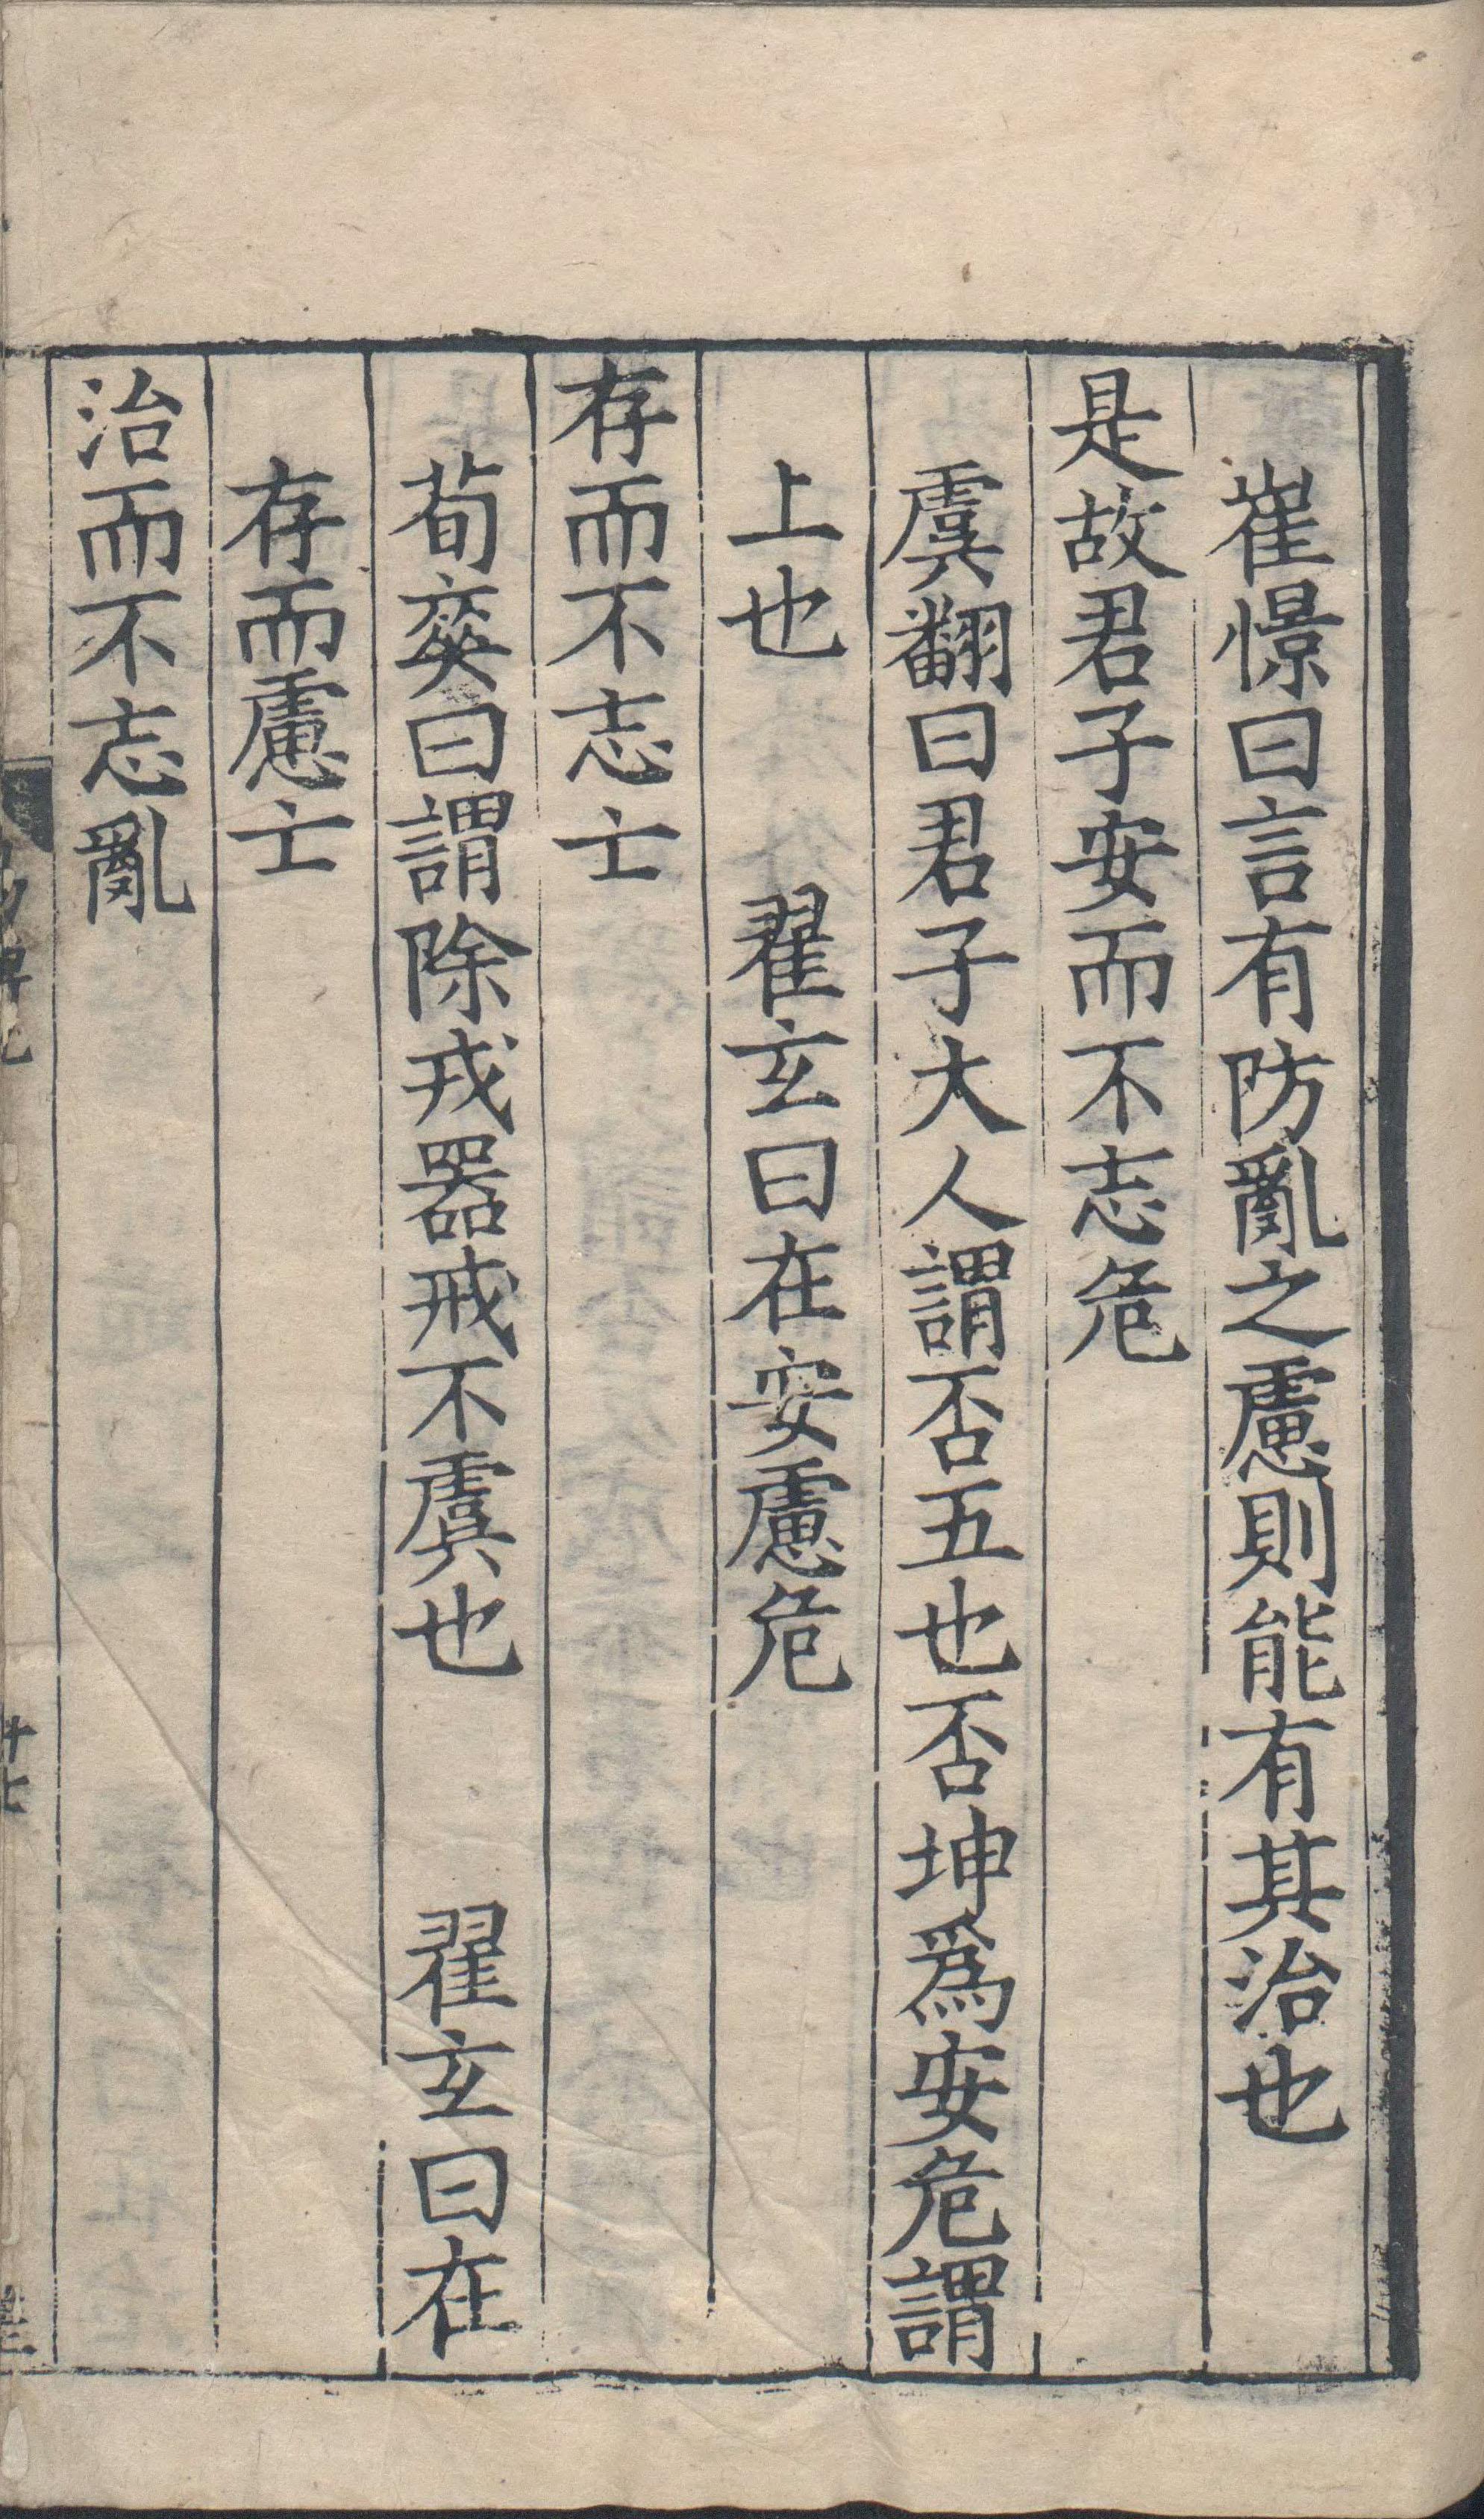 崔憬曰言有防亂之慮則能有其治也
是故君子安而不忘危
虞翻曰君子大人謂否五也否坤爲安危謂
上也　　翟玄曰在安慮危
存而不忘亡
荀爽曰謂除戎器戒不虞也　　翟玄曰在
存而慮亡
治而不忘亂